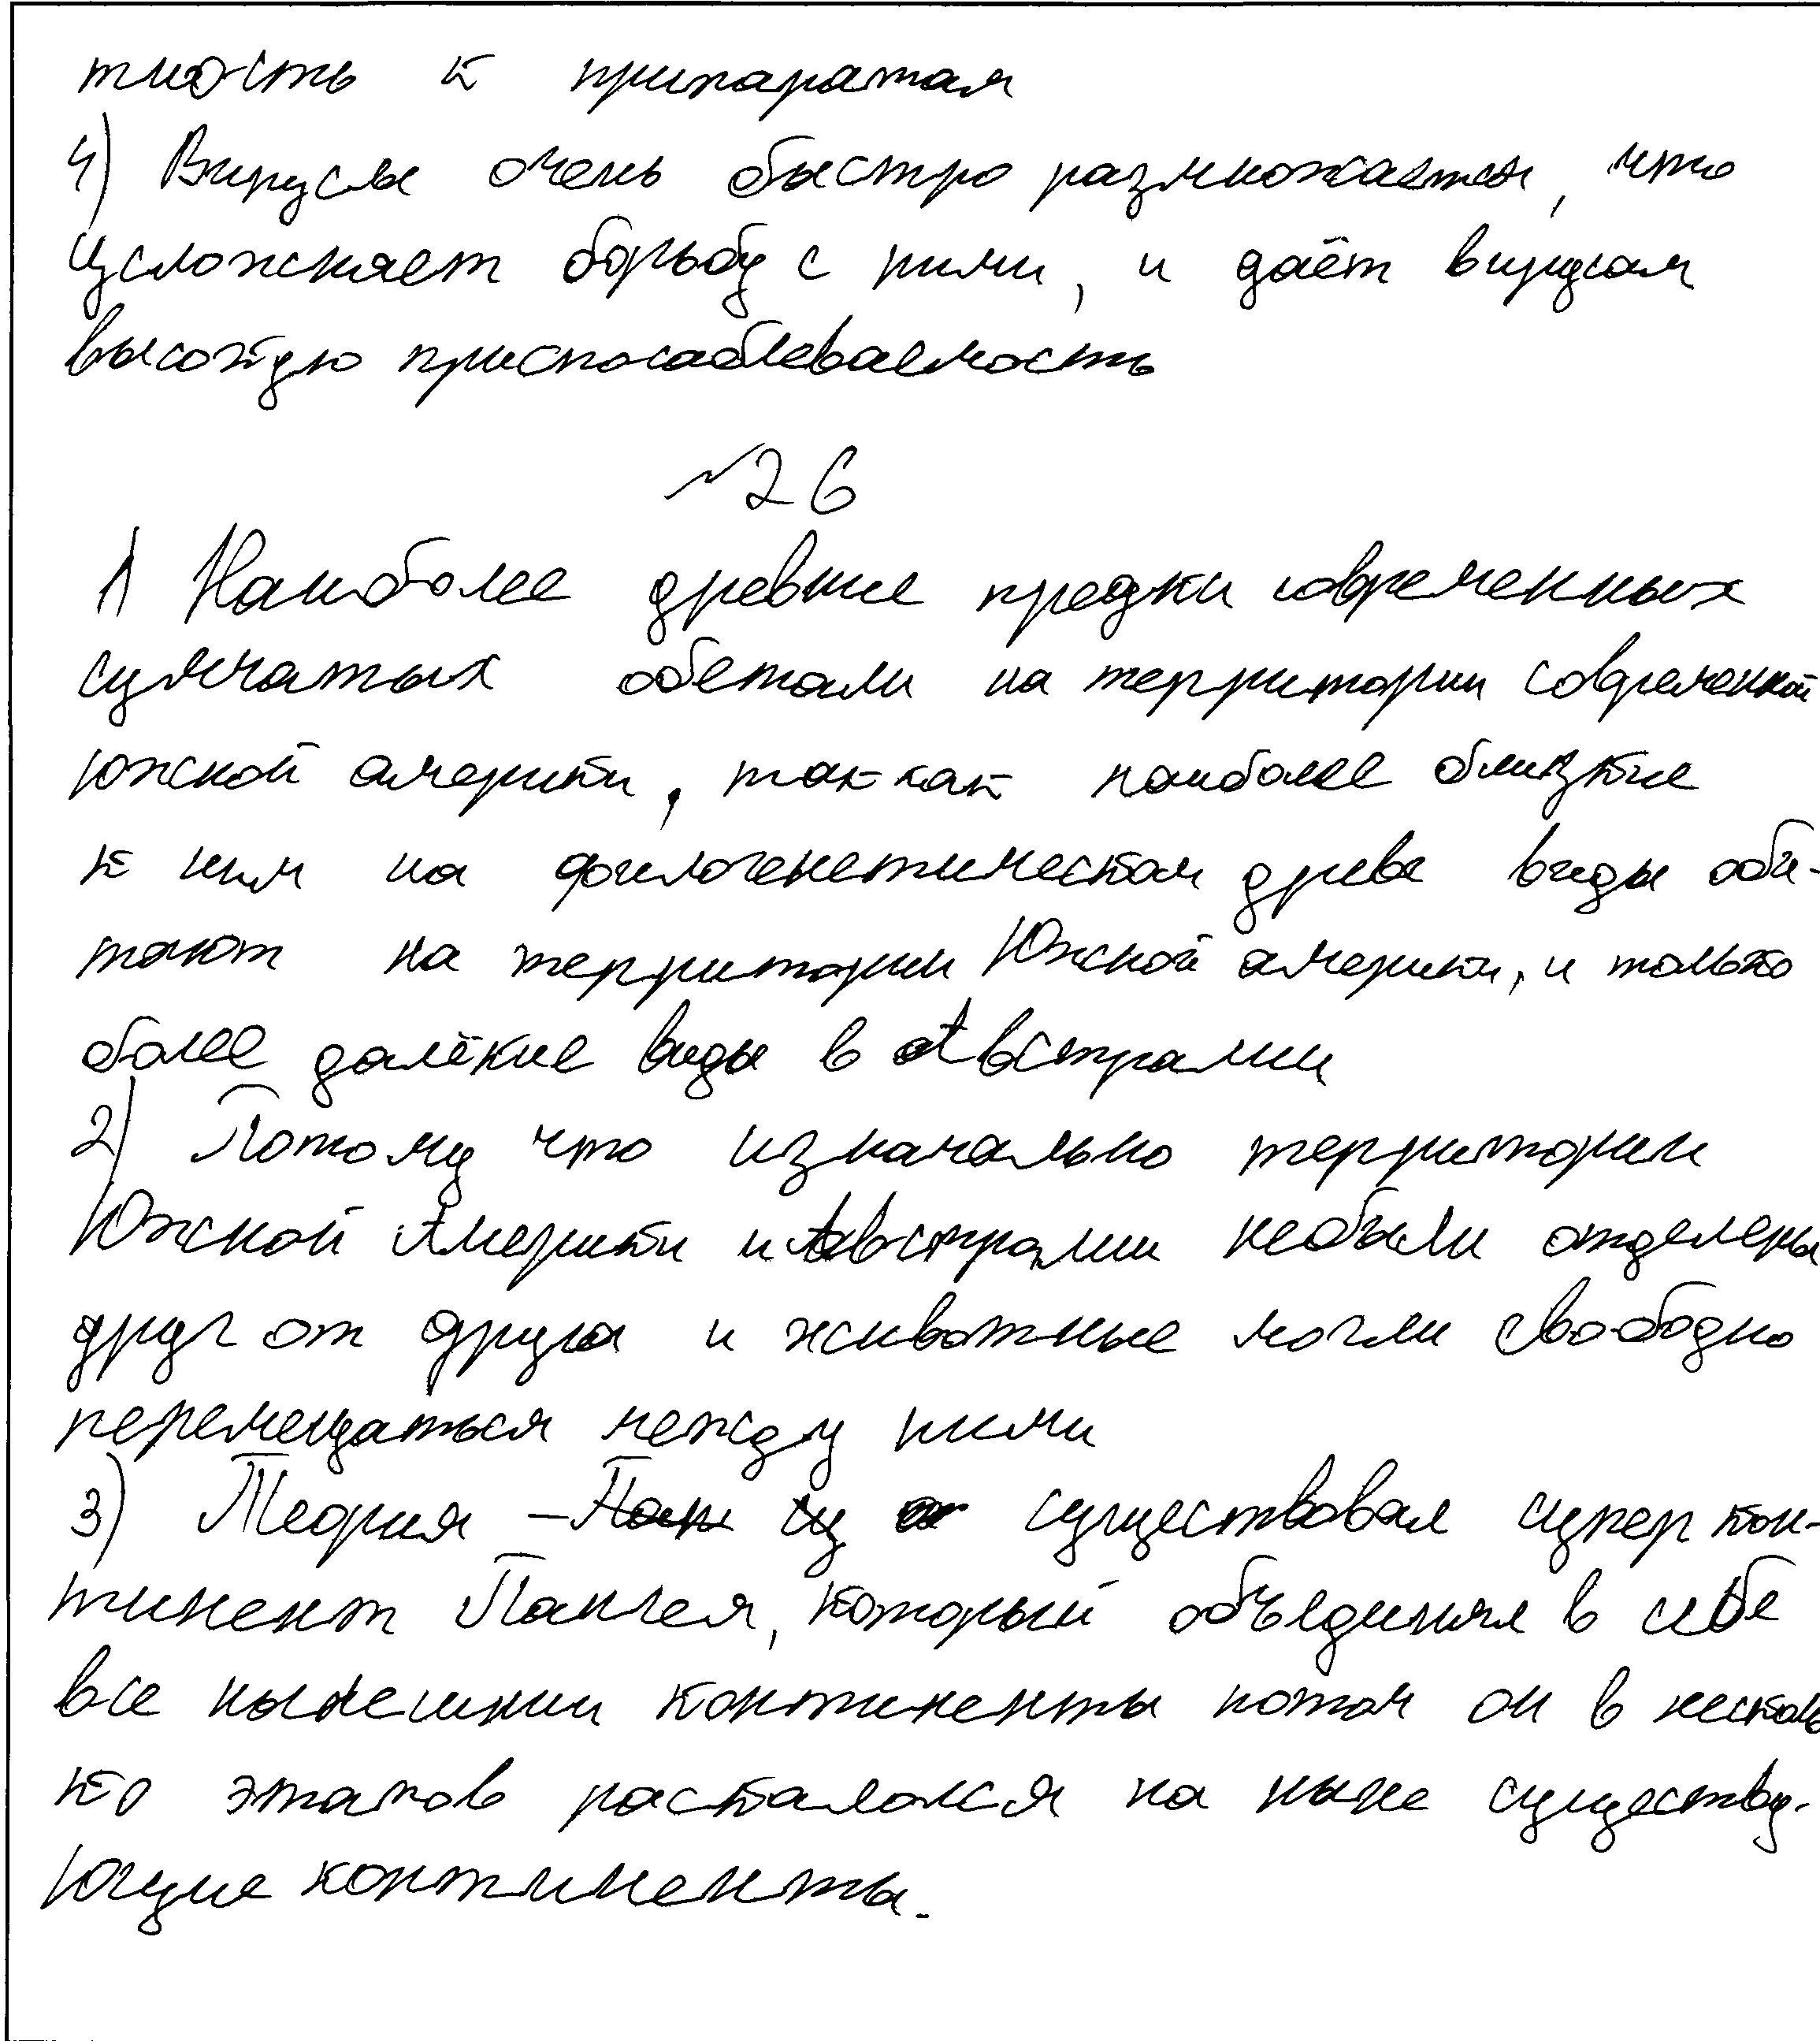 тность к припаратам
4) Вирусы очень быстро размножается, что
усложняет борьбу с ними, и даёт вирусам
высокую приспосабливаемость
№26
1) Наиболее древние предки современных
сумчатых обетали на территории современной
южной америки, так как наиболее близкие
к ним на филогенетическом древе виды оби-
тают на территории Южной америки, и только
более далёкие виды в Австралии
2) Потому что изначально территории
Южной Америки и Австралии небыли отделены
друг от друга и животные могли свободно
перемещаться между ними
3) Теория – существовал супер кон-
тинент Пангея, который объединял в себе
все нынешнии континенты потом он в несколь
ко этапов раскалолся на ныне существу-
ющие континенты.